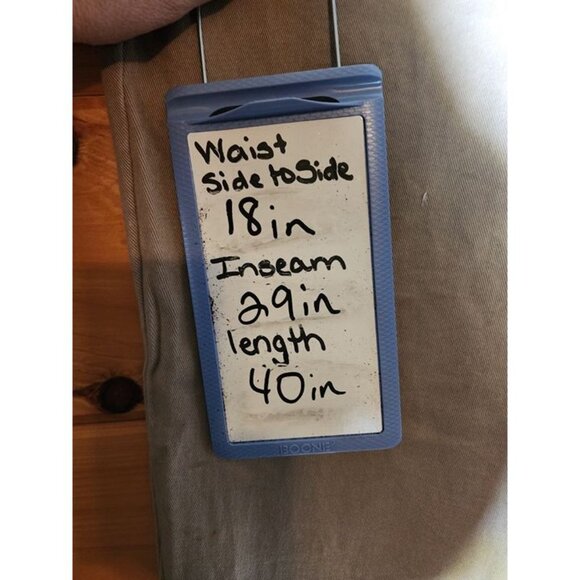 Waist
side to Side
18in
Inseam
29in
length
40in
BOONE